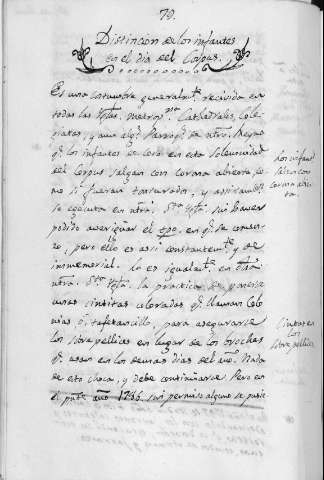 79.
Distincion de los infantes
en el dia del Corpus.
Es una costumbre generalmte. recivida en
todas las Yglas. Metropnas. Cathedrales, Cole-
giatas, y aun algs. Parroqs. de ntro. Reyno
q. los infantes de coro en esta solemnidad
del Corpus salgan con corona abierta, co-
mo si fueran tonsurados, y assi tambn.
se executa en ntra. Sta. Ygla. sin haver
podido averiguar el tpo. en q. se comen-
zo, pero ello es assi constantemte. y de
immemorial. Lo es igualmte. en
ntra. Sta. Ygla. la practica de ponerse
unas cintitas coloradas q. llaman Colo-
nias q. tafetancillo, para asegurarse
las sobrepellices en lugar de los broches
q. usan en los demas dias del año. Nada
de esto choca, y debe continuarse. Pero en
el pnte. año 1786. sin permiso alguno se pusie
los infants.
salen con
corona abie-
rta.
Cintas en
las
sobrepellices